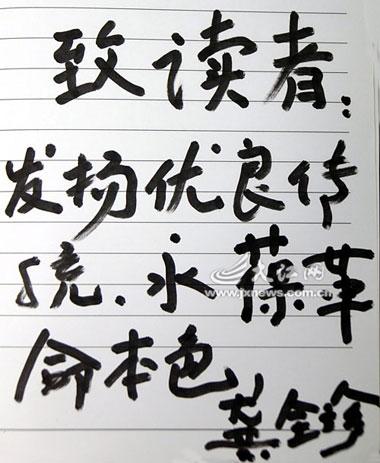 致读者:
发扬优良传
统、永葆革
命本色
龚全珍
大江网
www.jxnews.com.cn